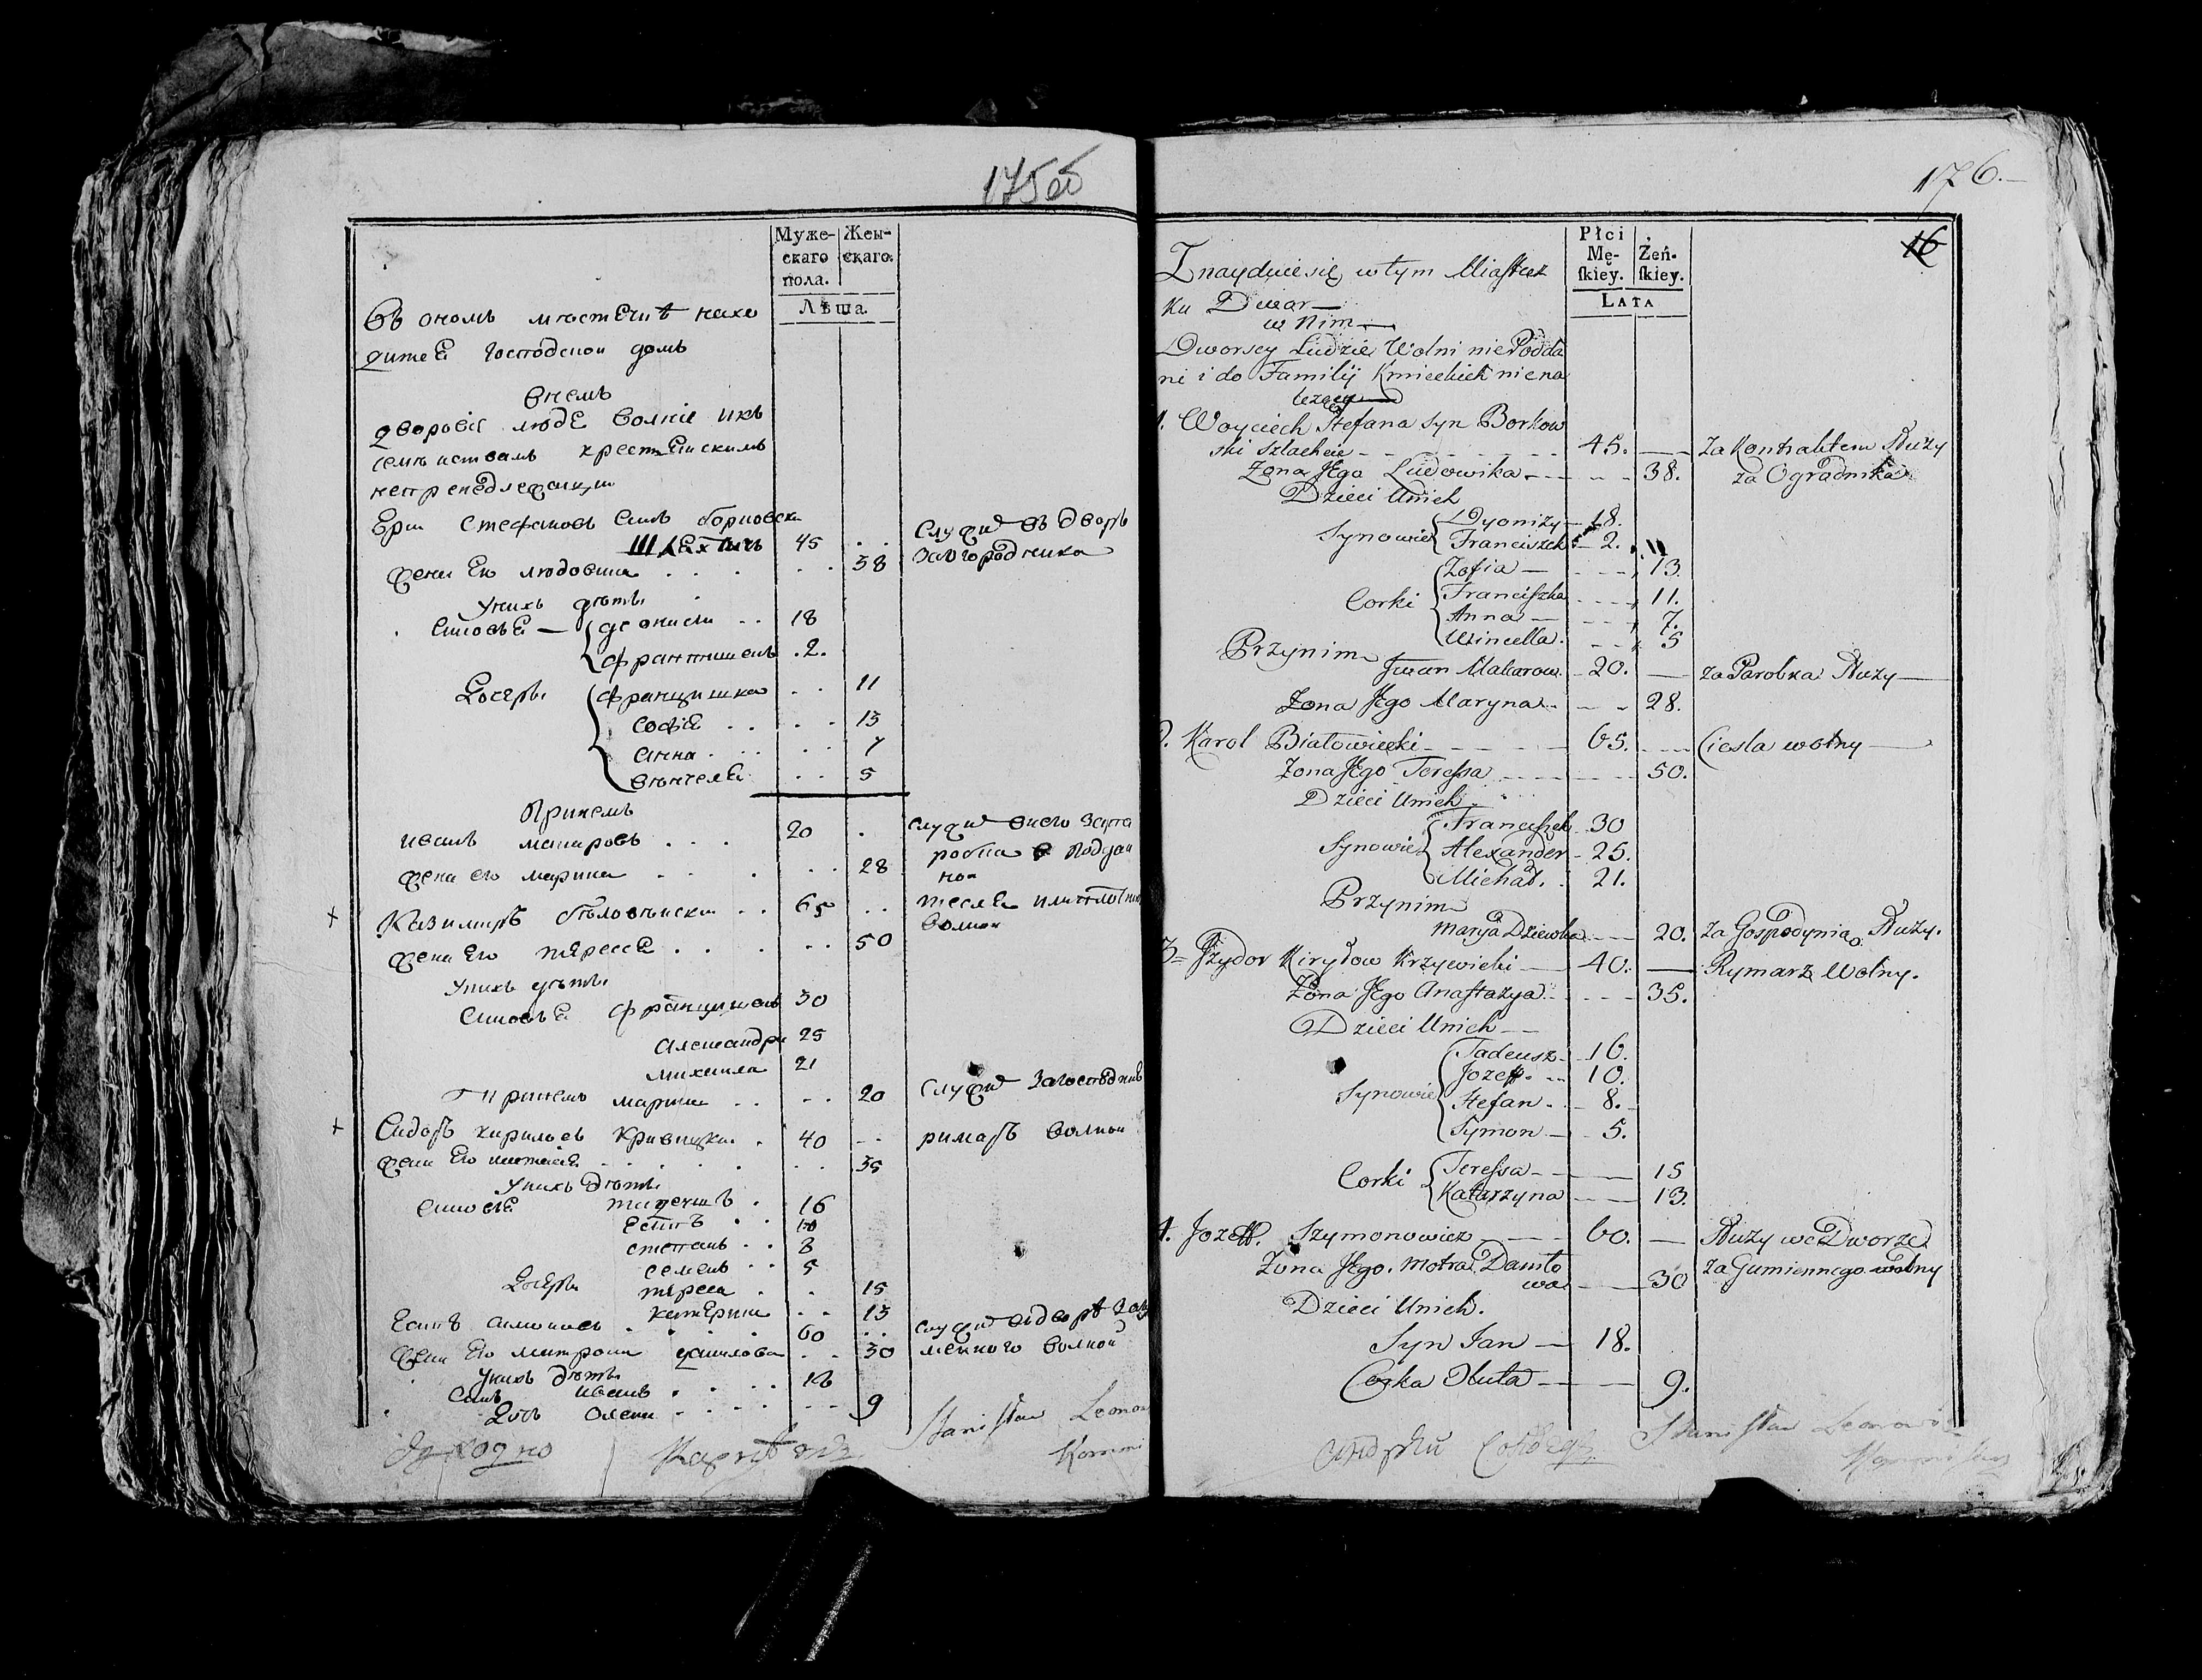 175об
Муже-
скаго
пола.
Жен-
скаго.
Лѣта.
Въ ономъ мѣстечкѣ нахо
дитсѧ господскои домъ
внемъ
дворовіе люде волніе икъ
семеиствамъ крестянскимъ
непренадлежащи
Стефановъ синъ борковски
шляхтичъ 45 . .
служи въ дворѣ
жена его людовика . . . . . 38
заогородника
Унихъ дѣти
синовья деониси . . 18
францишекъ . 2.
Дочеры францишка . . 11
софія . . . . 13
анна . . . . 7
винчеля . . 5
Принемъ
иванъ макаровъ . . . 20 .
служи
жена его марина . . . . . 28
x Казимиръ бѣловѣиски . . 65 . .
волнои
жена его тереся . . . . . 50
Унихъ дѣти
синовья францишекъ 30
александра 25
михаила 21
Принемъ марина . . . . 20
служи
x Сидоръ кириловъ кривицки . 40 . .
римаръ волнои
жена его . . . . . . 35
Унихъ дѣти
синовья тадеушъ . 16
есипъ . . 10
степанъ . . 8
семенъ . . 5
Дочеры тереса . . 15
катерина . . 13
Есипъ симоновъ . . . . . 60 . .
жена его матрона данилова . . 30
менного волнои
Унихъ дѣти
синъ иванъ . . . . 18
Дочъ олена . . . . . . 9
Stanisław
Kommi
176.
16
Płci
Mę-
skiey.
Żeń-
skiey.
LATA
Znayduie się w tym Miastecz
ku Dwor
w Nim
Dworscy Ludzie Wolni nie Podda
ni i do Familij Kmieckich niena
lezący
1. Woyciech Stefana Syn Borkow
ski Szlachcic 45. za Kontraktem Służy
Zona Jego Ludowika 38. za Ogrodnika
Dzieci Unich
Synowie Dyonizy 18.
Franciszek 2.
Corki Zofia 13.
Franciszka 11.
Anna 7.
Wincella 5
Przynim
Jwan Makarow 20. za Parobka Służy
Zona Jego Maryna 28.
Karol Białowieyki 65. Ciesla wolny
Zona Jego Teressa 50.
Dzieci Unich
Synowie Franciszek 30
Alexander 25.
Michał 21.
Przynim
Marya Dziewka 20. za Gospodynią Służy.
3 Jzydor Kiryłow Krzywicki 40. Rymarz Wolny.
Zona Jego Anastazya 35.
Dzieci Unich
Synowie Tadeusz 16.
Jozeff 10.
Stefan 8.
Symon 5.
Corki Teressa 15
Katarzyna 13.
4. Jozeff Szymonowicz 60. Służy we Dworze
Zona Jego Motra Daniło
wa 30 za Gumiennego wolny
Dzieci Unich.
Syn Jan 18.
Corka Huta 9.
Stanisław